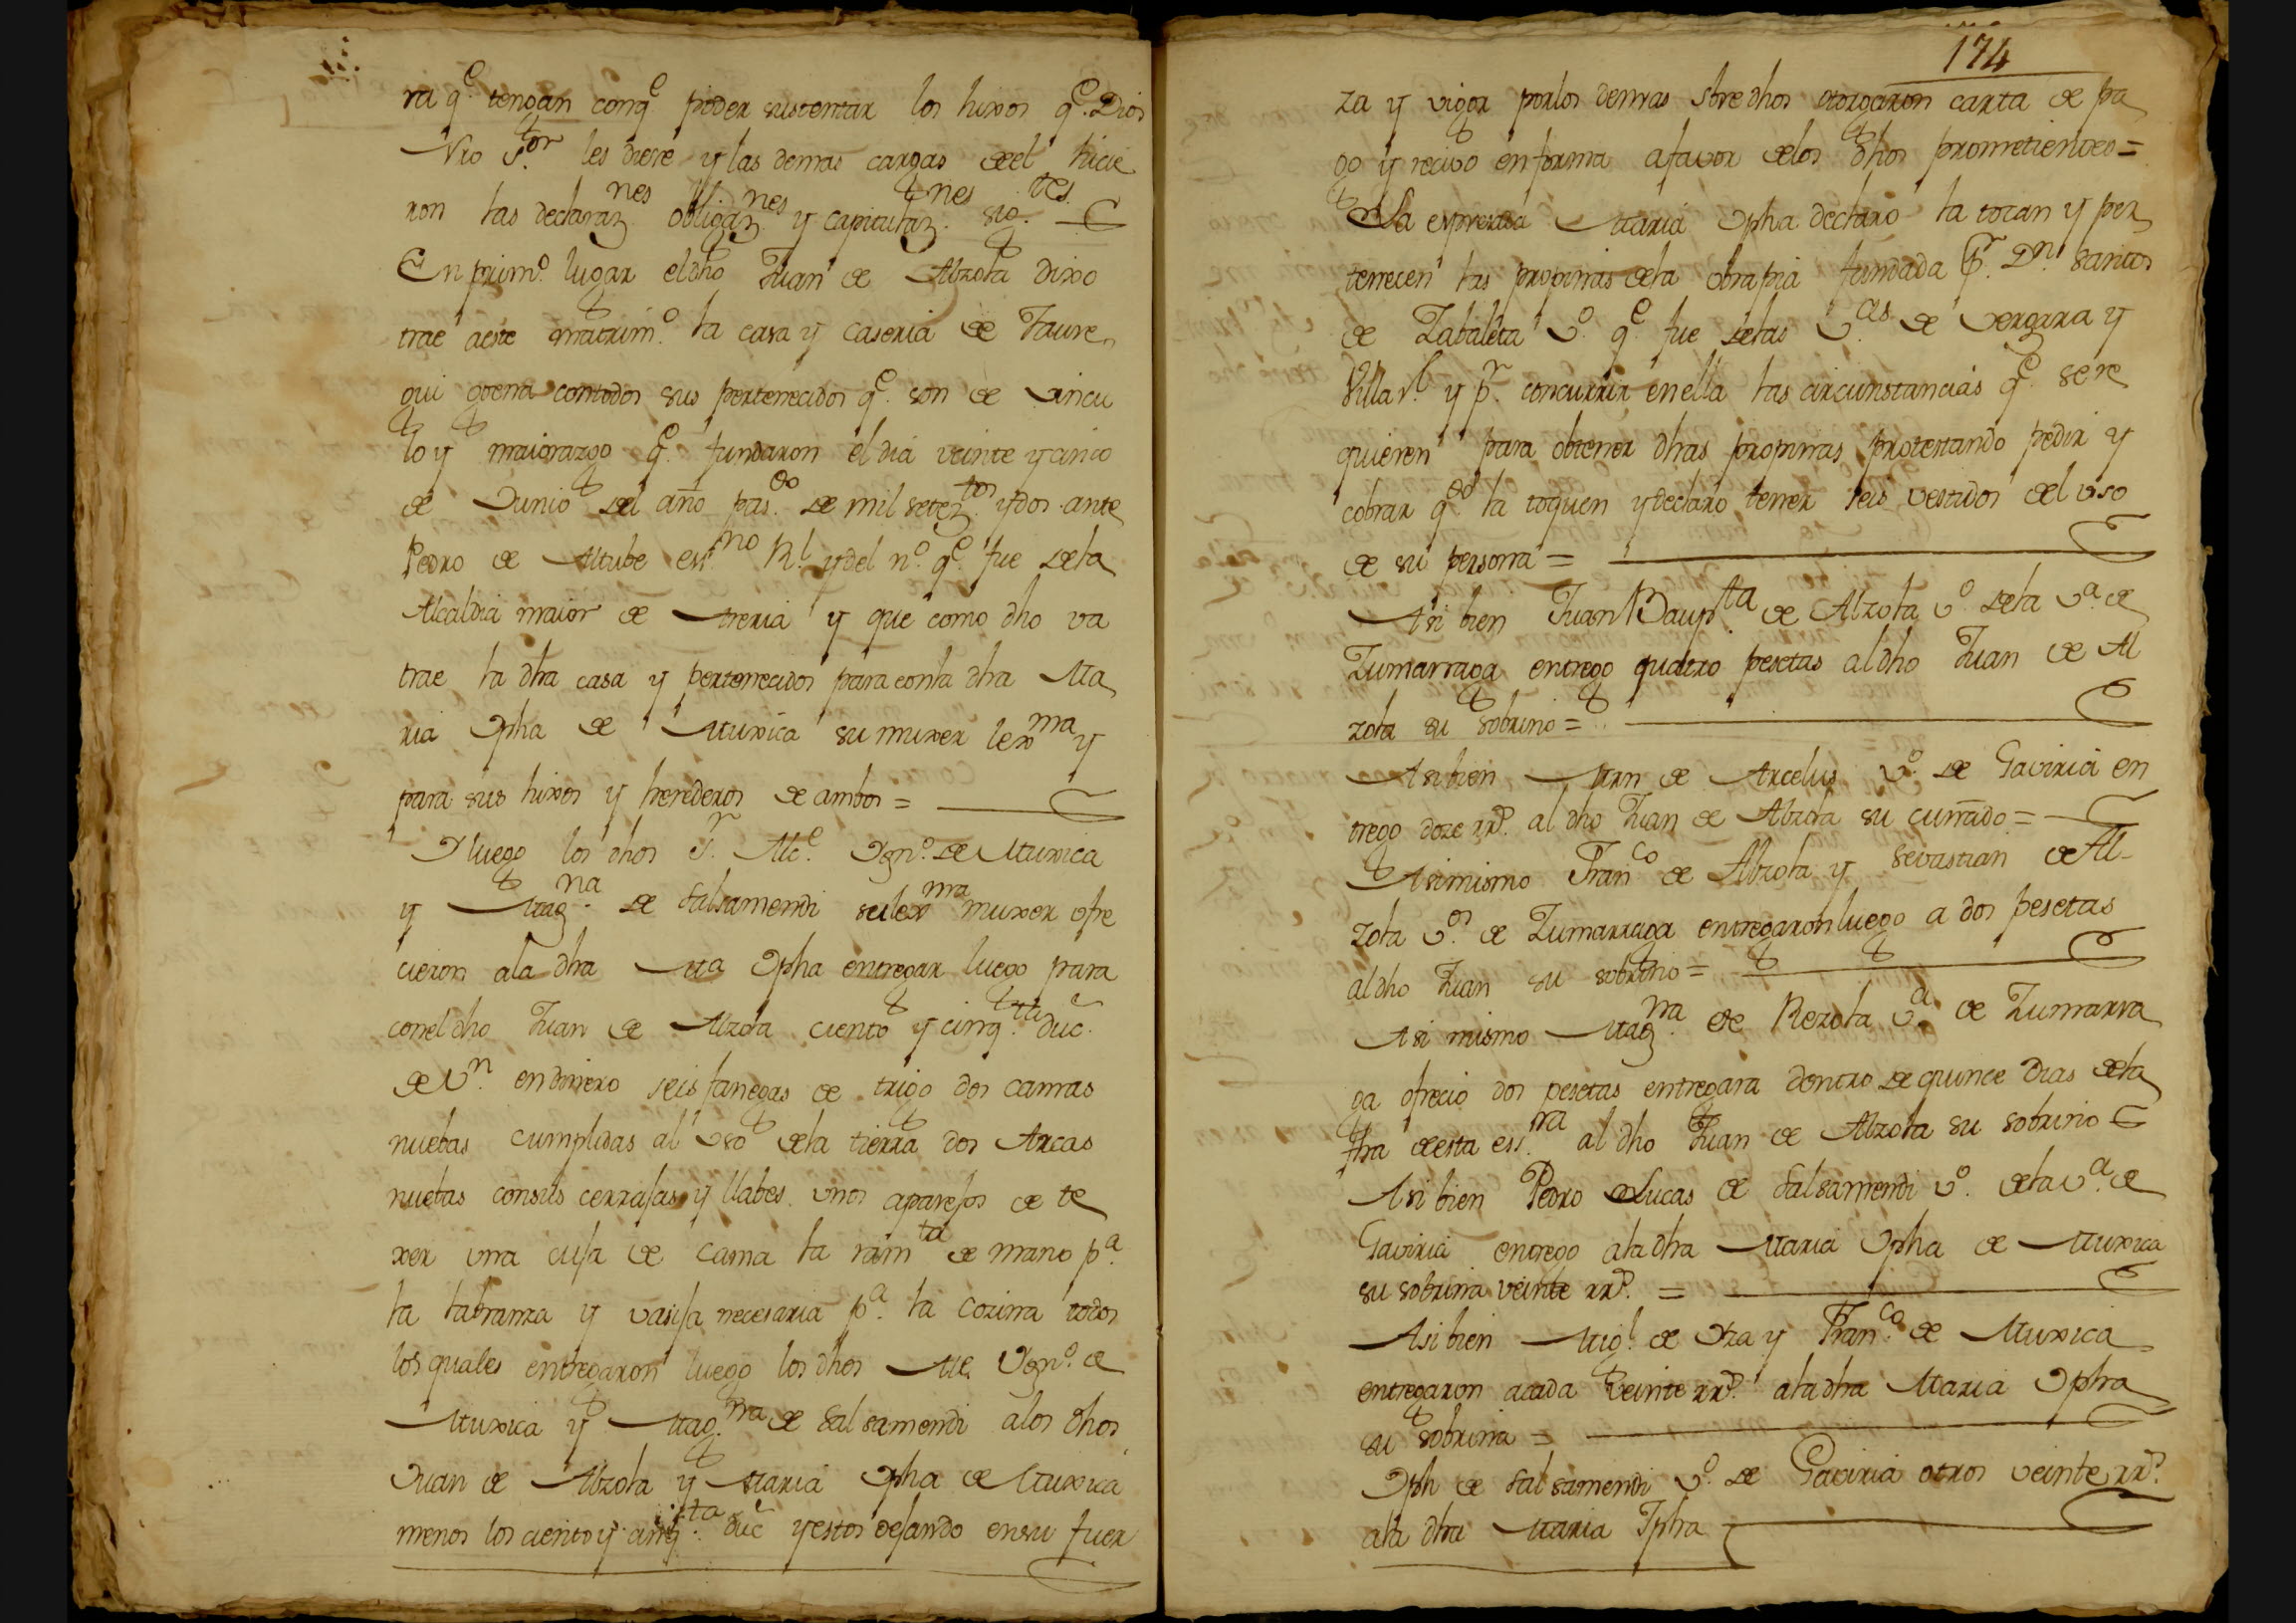 ra q.e tengan conq.e poder sustentar los hixos q.e Dios
Nro S.or les diere y las demas cargas deel hicie
ron las declaraz.nes obligaz.nes y capitulaz.nes sig.tes
En prim.o lugar eldho Juan de Alzola dixo
trae aeste matrim.o la casa y caseria de Jaure
gui goena contodos sus pertenecidos q.e son de vincu
lo y maiorazgo q.e fundaron el dia veinte ycinco
de Junio del año pas.do de mil setez.tos ydos ante
Pedro de Altube ess.no R.l ydel n.o q.e fue dela
Alcaldia maior de Areria y que como dho va
trae la dha casa y pertenecidos para conla dha Ma
ria Jpha de Muxica su muxer lex.ma y
para sus hixos y herederos de ambos =
Y luego los dhos S.r Alc.e Ygn.o de Muxica
y Mag.na de Salsamendi su lex.ma muxer ofre
cieron ala dha M.a Jpha entregar luego para
conel dho Juan de Alzola ciento y cinq.ta duc.
de V.n endinero seis fanegas de trigo dos camas
nuebas cumplidas al vso dela tierra dos Arcas
nuebas consus cerrajas y llabes vnos aparejos de te
xer vna cuja de cama la ram.ta de mano p.a
la labranza y vasija necesaria p.a la cozina todos
los quales entregaron luego los dhos Alc.e Ygn.o de
Muxica y Mag.na de Salsamendi alos dhos
Juan de Alzola y Maria Jpha de Muxica
menos los ciento y cinq.ta duc yestos dejando ensu fuer
174
za y vigor porlos demas sbredhos otorgaron carta de pa
go y recivo enforma afavor delos dhos prometiendo =
La expresada Maria Jpha declaro la tocan y per
tenecen las propinas dela obrapia fundada p.r D.n Santos
de Zabaleta v.o q.e fue delas v.as de Vergara y
Villa r.l y p.r concurrir enella las circunstancias q.e se re
quieren para obtener dhas propinas protestando pedir y
cobrar q.do la toquen ydeclaro tener seis vestidos del vso
de su persona =
Asi bien Juan Baup.ta de Alzola v.o dela v.a de
Zumarraga entrego quatro pesetas aldho Juan de Al
zola su sobrino =
Asibien Mrn de Arcelus v.o de Gaviria en
trego doze rr.s al dho Juan de Alzola su cuñado =
Asimismo Fran.co de Alzola y Sevastian de Al-
zola v.os de Zumarraga entregaron luego a dos pesetas
aldho Juan su sobrino =
Asi mismo Mag.na de Rezola v.a de Zumarra
ga ofrecio dos pesetas entregara dentro de quince dias dela
fha desta ess.ra al dho Juan de Alzola su sobrino
Asi bien Pedro Lucas de Salsamendi v.o dela v.a de
Gaviria entrego ala dha Maria Jpha de Muxica
su sobrina veinte rr.s =
Asi bien Mig.l de Oza y Fran.co de Muxica
entregaron acada veinte rr.s ala dha Maria Jpha
su sobrina =
Jph de Salsamendi v.o de Gaviria otros veinte rr.s
ala dha Maria Jpha